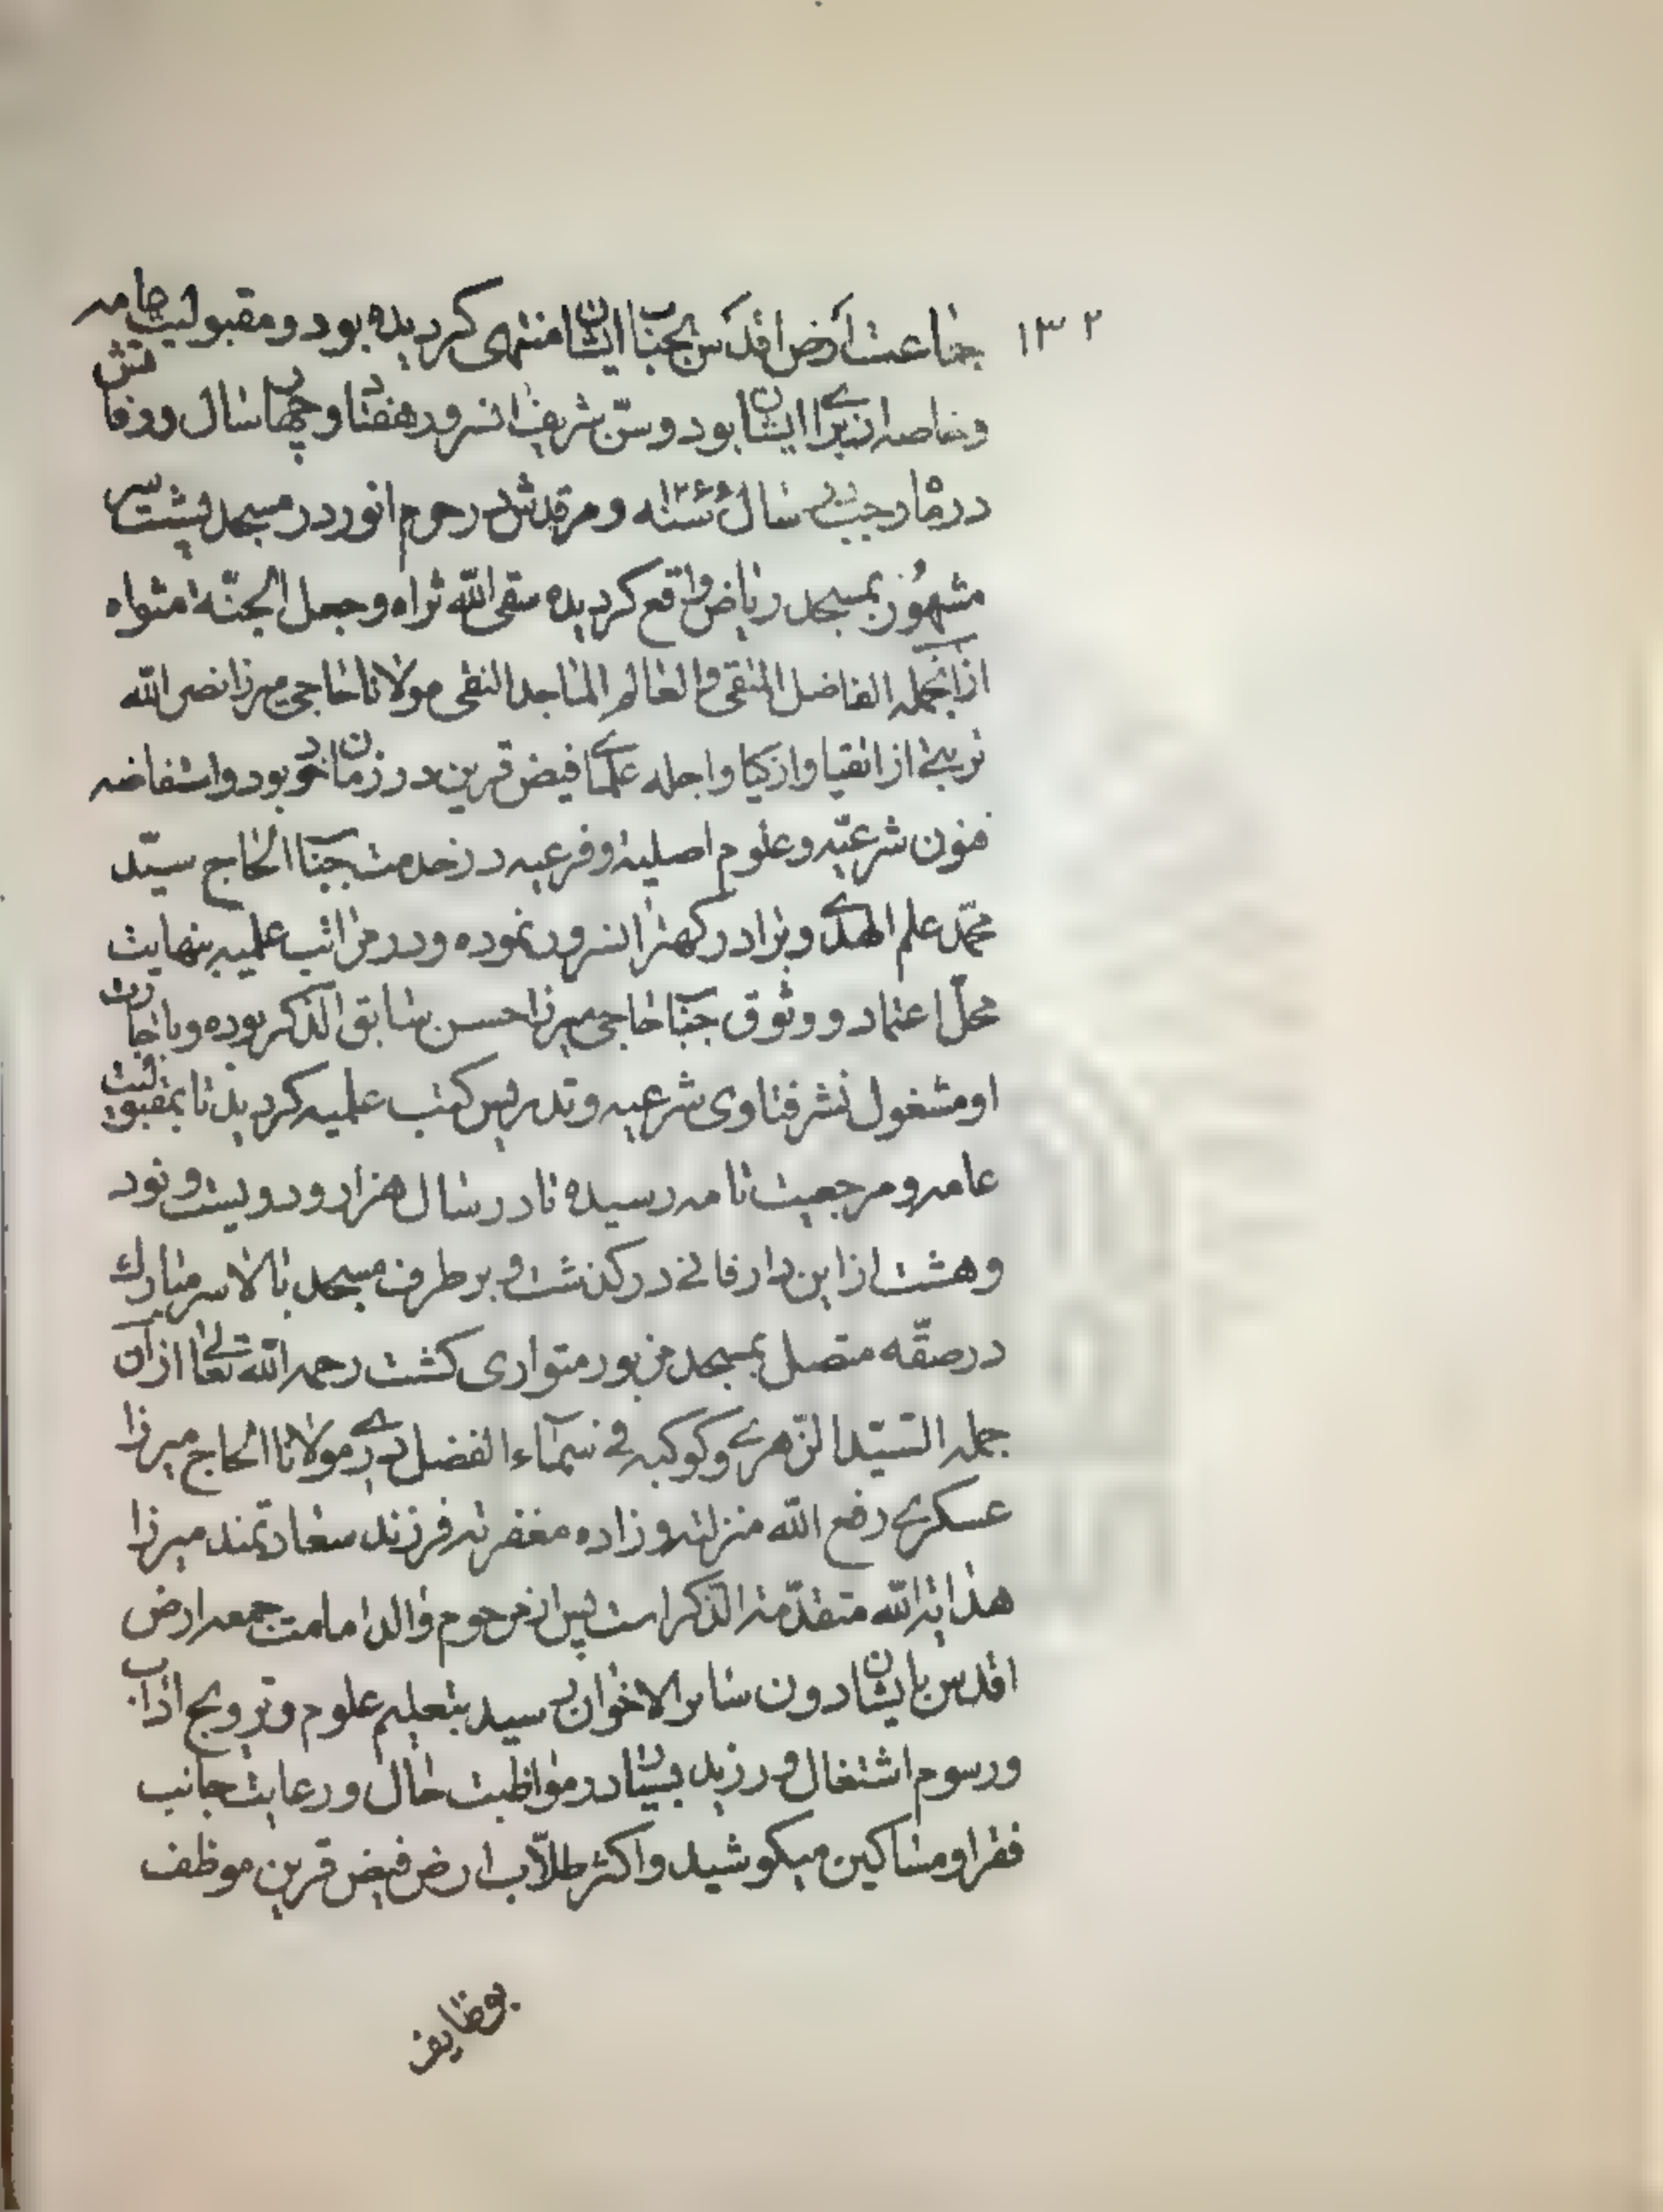 ۱۳۲
جماعت ارض اقدس بجناب ایشان منتهی کردیده بود و مقبولیت عامه
و خاصه از برای ایشان بود و سن شریف انسرور هفتاد و چهار سال و وفاتش
در ماه رجب سال سنه ۱۲۶۶ و مرقدش در حرم انور در مسجد پشت سر
مشهور بمسجد ریاض واقع کردیده سقی الله ثراه و جعل الجنّة مثواه
از آنجمله الفاضل المتقی و العالم الماجد النقی مولانا حاجی میرزا نصر الله
تربتی از اتقیا و ازکیا و اجله علمای فیض قرین در زمان خود بود و استفاضه
فنون شرعیّه و علوم اصلیه و فرعیه در خدمت جناب الحاج سیّد
محمّد علم الهدی و برادر کهتر انسرور نموده و در مراتب علمیه بنهایت
محلّ اعتماد و وثوق جناب حاجی میرزا حسن سابق الذکر بوده و با اجازت
او مشغول نشر فتاوی شرعیه و تدریس کتب علمیه کردید تا بمقبولیت
عامه و مرجعیت تامه رسیده تا در سال هزار و دویست و نود
و هشت از این دار فانی در کذشت و بر طرف مسجد بالاسر مبارک
در صفّه متصل بمسجد مزبور متواری کشت رحمه الله تعالی از آن
جمله السّیّد الزّهری و کوکبه فی سمآء الفضل دری مولانا الحاج میرزا
عسکری رفع الله منزلته و زاده مغفرته فرزند سعادتمند میرزا
هدایة الله متقدّمة الذّکر است پس از مرحوم والد امامت جمعه ارض
اقدس بایشان دون سایر الاخوان رسید بتعلیم علوم و ترویج اداب
و رسوم اشتغال ورزید بسیار در مواظبت حال و رعایت جانب
فقرا و مساکین میکوشید و اکثر طلّاب ارض فیض قرین موظف
بوظایف